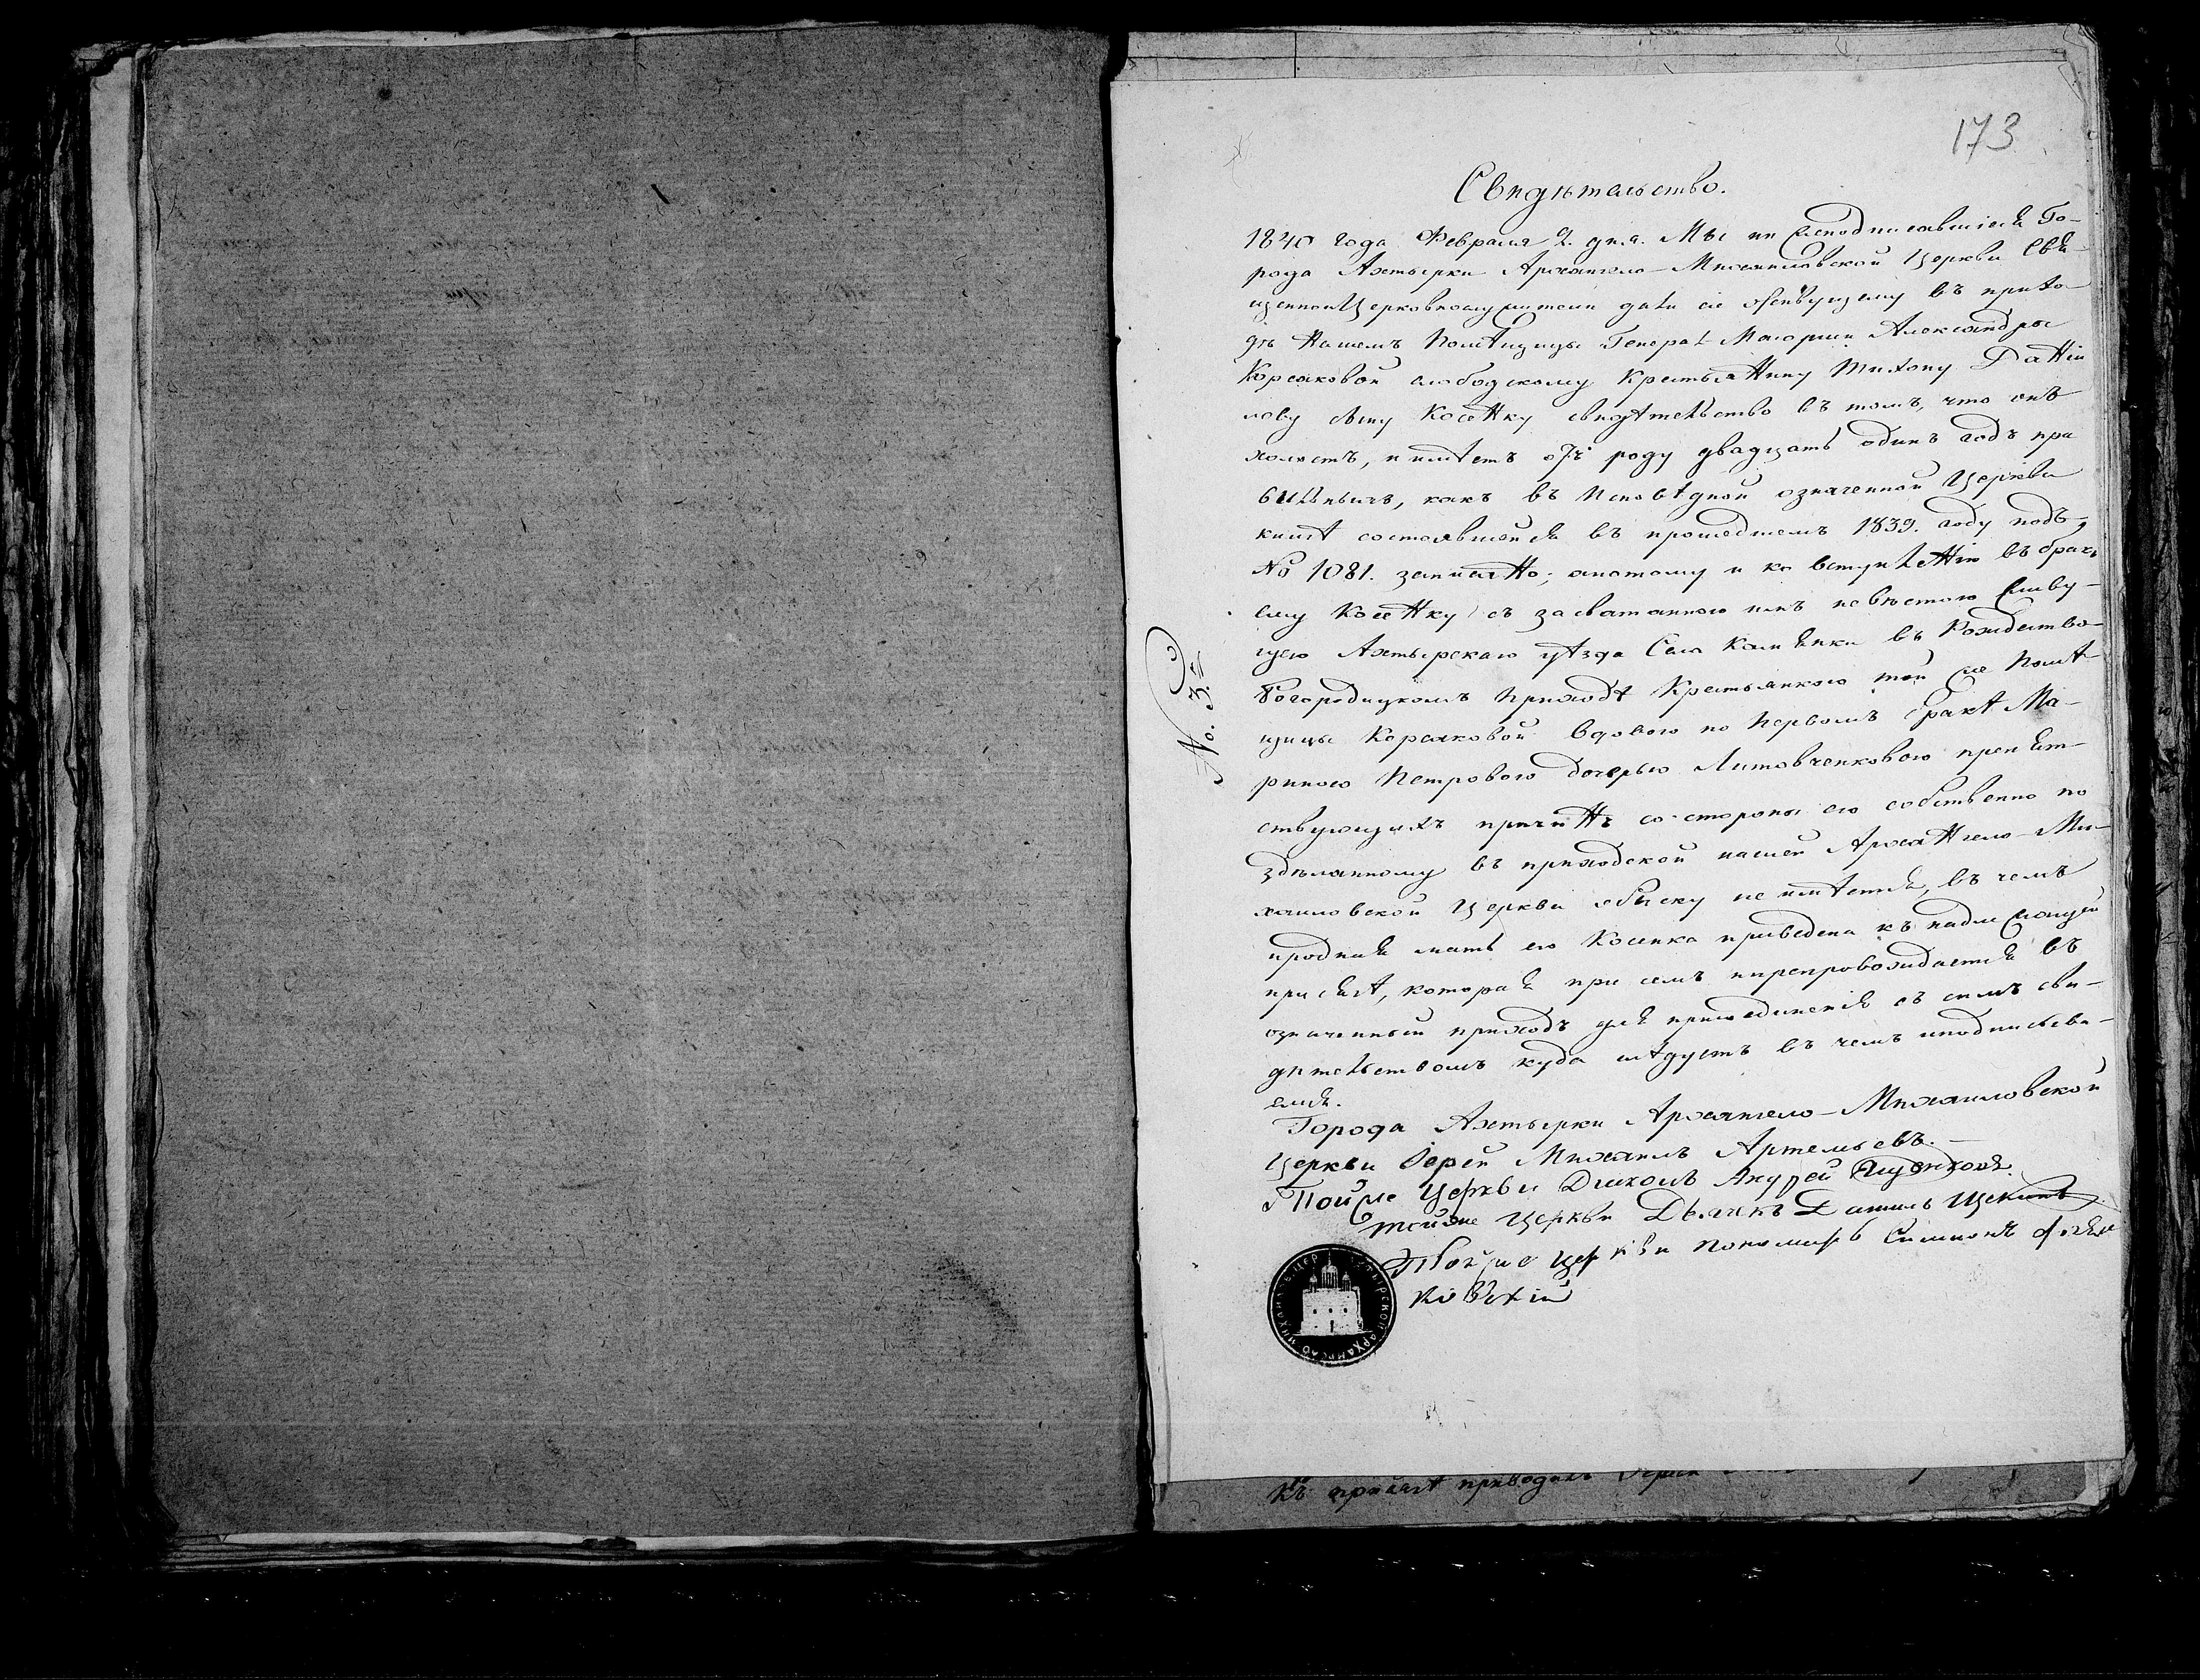 173
Свидѣтельство.
1840 года Февраля 2. дня. Мы нижеподписавшіеся Го-
рода Ахтырки Архангело-Михаиловской Церкви Свя-
щенноцерковнослужители дали сіе жительствующему въ прихо-
дѣ нашемъ Помѣщицы Генералъ Маіорши Александры
Корсаковой слободскому Крестьянину Тихону Даніи
лову сыну Косенку свидѣтельство въ томъ, что онъ
холостъ, и имѣетъ отъ роду двадцать одинъ годъ пра
вильныхъ, какъ въ Исповѣдной означенной Церкви
книгѣ состоявшейся въ прошедшемъ 1839. году подъ
№ 1081. записано; а потому и ко вступленію въ бракъ
ему Косенку съ засватанною имъ невѣстою живу-
щею Ахтырскаго уѣзда Села Камянки въ Рождество-
Богородицкомъ приходѣ Крестьянкою той же Помѣ-
щицы Корсаковой вдовою по первомъ бракѣ Ма-
риною Петровою дочерью Литовченковою препят-
ствующихъ причинъ со стороны его собственно по
здѣланному въ приходской нашей Архангело-Ми-
хаиловской Церкви обыску не имѣется, въ чемъ
и родная мать его Косенка приведена къ надлежащей
присягѣ, которая при семъ и препровождается въ
означенный приходъ для пріисоединенія съ симъ сви-
дѣтельствомъ куда слѣдуетъ въ чемъ и подписыва-
емся.
Города Ахтырки Архангело-Михаиловской
Церкви Іерей Михаилъ Артемьевъ.
Той же Церкви Діаконъ Андрей
той же Церкви Дьячкъ Даніилъ
Той же Церкви Пономарь Симіонъ
ковскій
№. 3.й
АХТЫРСКОЙ АРХАНГЕЛО МИХАИЛ. ЦЕР.
Къ присягѣ приводилъ Іерей